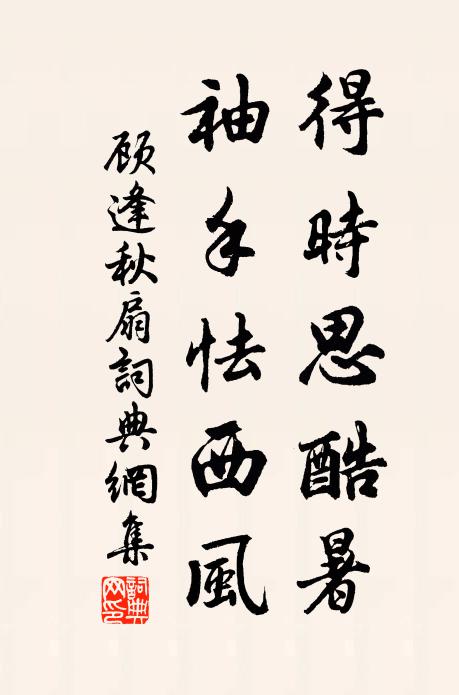 得時思酷暑
袖手怯西風
顾逢秋扇詞典網集
詞典網印